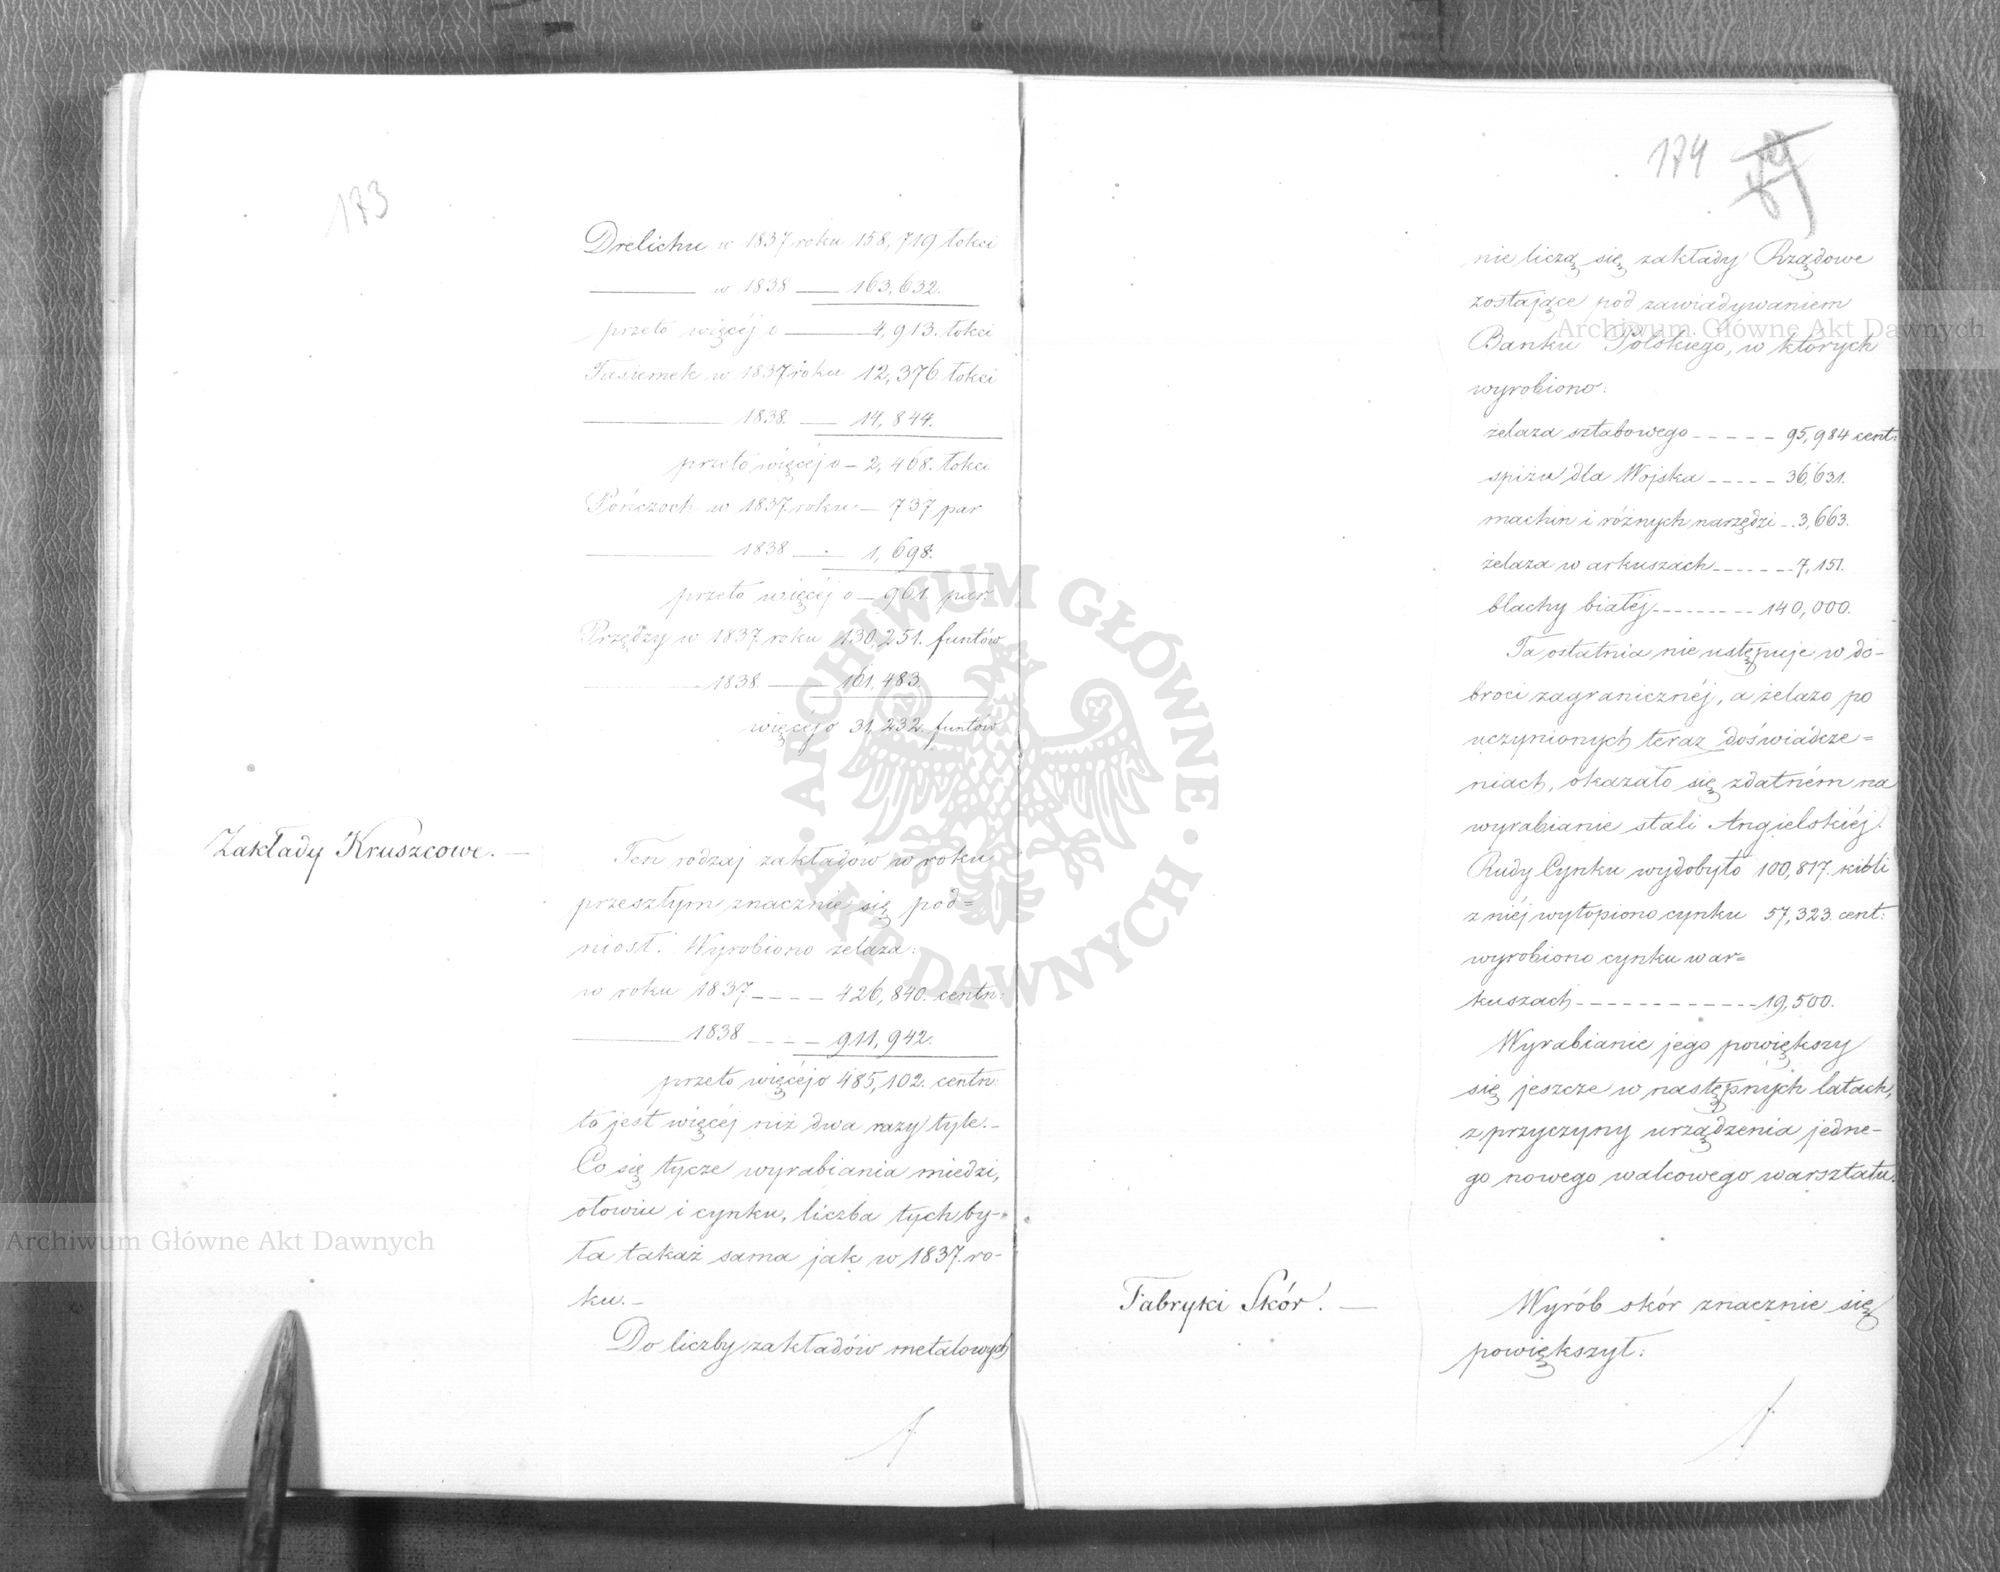 173
Drelichu w 1837 roku 158,719 łokci
w 1838 163,632.
przeto więcéj o 4,913. łokci
Tasiemek w 1837 roku 12,376 łokci
1838. 14,844.
przeto więcéj o – 2,468. łokci
Pończoch w 1837. roku – 737 par
1838 1,698.
przeto więcéj o – 961. par
Przędzy w 1837. roku 130,251. funtów
1838. 161,483.
więcéj o 31,232. funtów
Zakłady Kruszcowe. –
Ten rodzaj zakładów w roku
przeszłym znacznie się pod=
niosł. Wyrobiono żelaza:
w roku 1837 – – – – 426,840. centn:
1838 – – – – 911,942.
przeto więcéj o 485,102. centn:
to jest więcéj niż dwa razy tyle. –
Co się tycze wyrabiania miedzi,
ołowiu i cynku, liczba tych by-
ła takaż sama jak w 1837. ro-
ku. –
Do liczby zakładów metalowych
174
nie liczą się zakłady Rządowe
zostające pod zawiadywaniem
Banku Polskiego, w których
wyrobiono:
żelaza sztabowego – – – – – 95,984 cent:
spiżu dla Wojska – – – – – 36,631.
machin i różnych narzędzi – – 3,663.
żelaza w arkuszach – – – – – – – 7,151.
blachy białéj – – – – – – – – – 140,000.
Ta ostatnia nie ustępuje w do-
broci zagranicznéj, a żelazo po
uczynionych teraz doświadcze=
niach, okazało się zdatném na
wyrabianie stali Angielskiéj.
Rudy Cynku wydobyto 100,817. kibli
z niéj wytopiono cynku 57,323. cent:
wyrobiono cynku w ar=
kuszach – – – – – – – – – – – – 19,500.
Wyrabianie jego powiększy
się jeszcze w następnych latach,
z przyczyny urządzenia jedne-
go nowego walcowego warsztatu.
Fabryki Skór. –
Wyrób skór znacznie się
powiększył:
Archiwum Główne Akt Dawnych
Archiwum Główne Akt Dawnych
· ARCHIWUM GŁÓWNE · AKT DAWNYCH